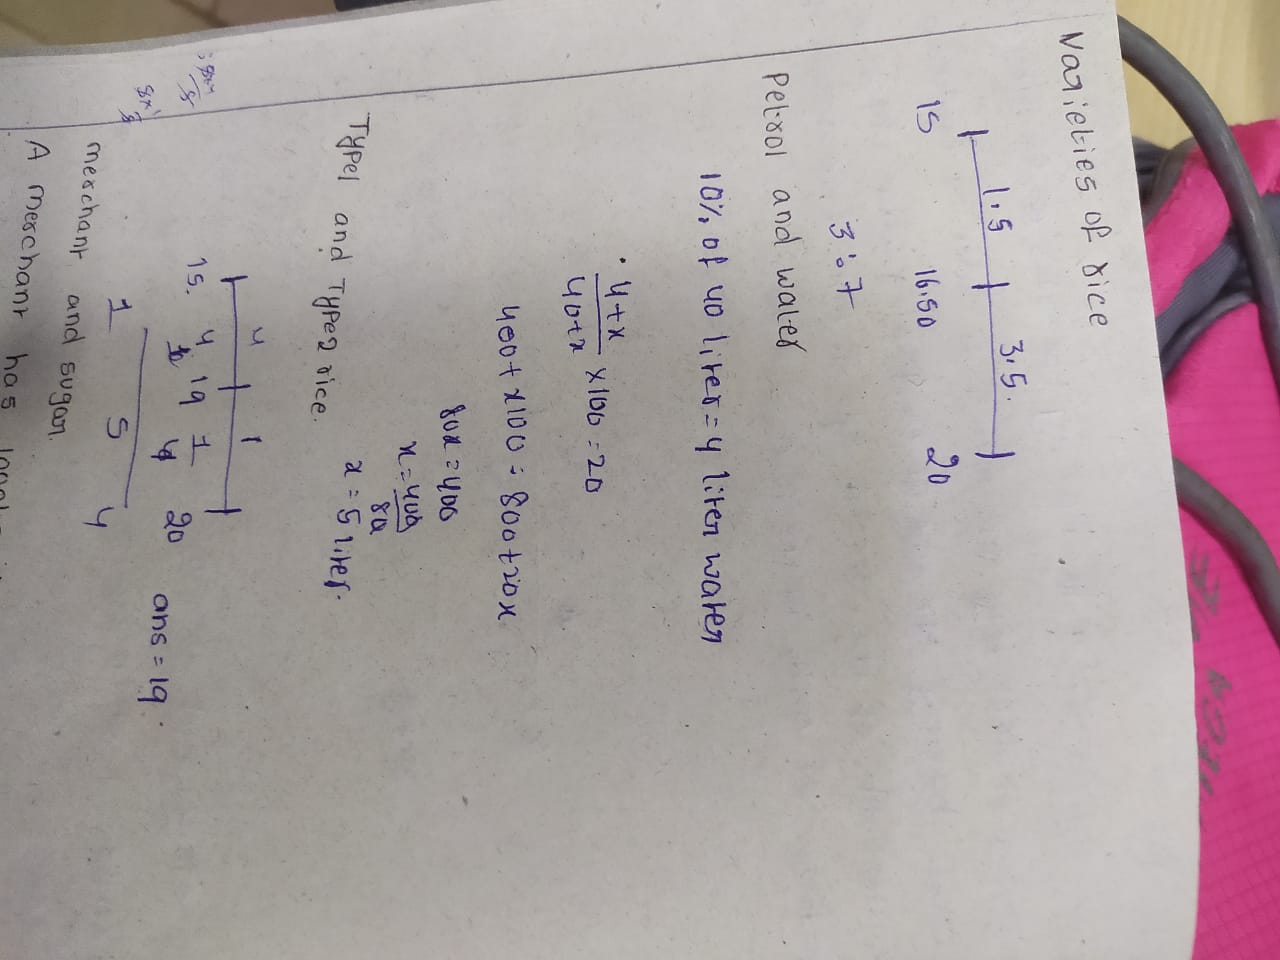 Varieties of rice
1.5 3.5.
15 16.50 20
3:7
Petrol and water
10% of 40 liter = 4 liter water
4+x
40+x
×100 = 20
400 + x100 = 800+20x
80x = 400
x = 400
80
x = 5 liter.
Type1 and Type2 rice.
4 1
15. 19 20
4 1
1 5 4
ans = 19.
merchant and sugar.
A merchant has